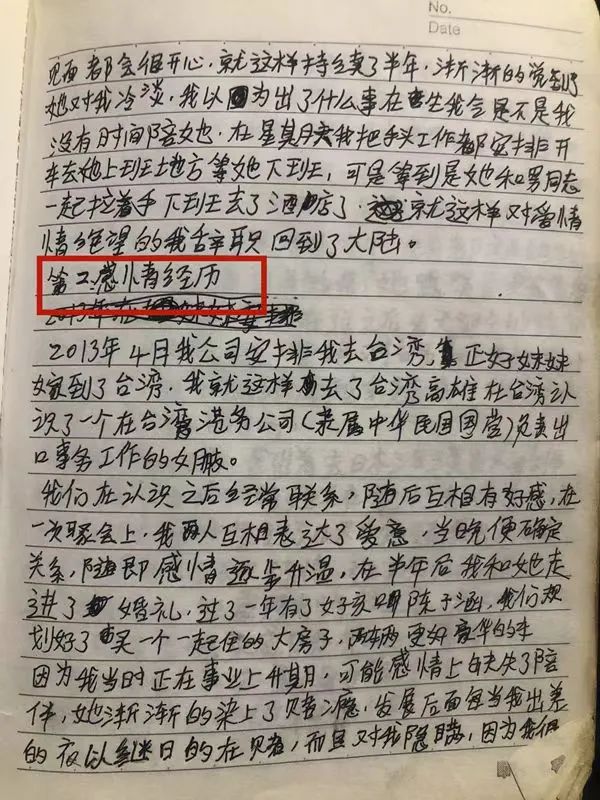 No.
Date
见面都会很开心，就这样持续了半年，渐渐的觉到了
她对我冷淡，我以为出了什么事在生我气是不是我
没有时间陪她，在星期天我把手头工作都安排开
车去她上班地方等她下班，可是等到是她和男同志
一起拉着手下班去了酒店了，就这样对爱情
情绝望的我辞职回到了大陆。
第二感情经历
2013年4月我公司安排我去台湾，正好妹妹
嫁到了台湾，我就这样去了台湾高雄在台湾认
识了一个在台湾港务公司(隶属中华民国国营)负责出
口事务工作的女朋友。
我们在认识之后经常联系，随后互相有好感，在
一次聚会上，我两人互相表达了爱意，当晚便确定
关系，随即感情逐步升温，在半年后我和她走
进了婚礼，过了一年有了女孩叫陈子涵，我们规
划好了买一个一起住的大房子，两辆更好豪华的车
因为我当时正在事业上升期，可能感情上缺失了陪
伴，她渐渐的染上了赌瘾，发展后面每当我出差
的夜以继日的在贝者，而且对我隐瞒，因为我们